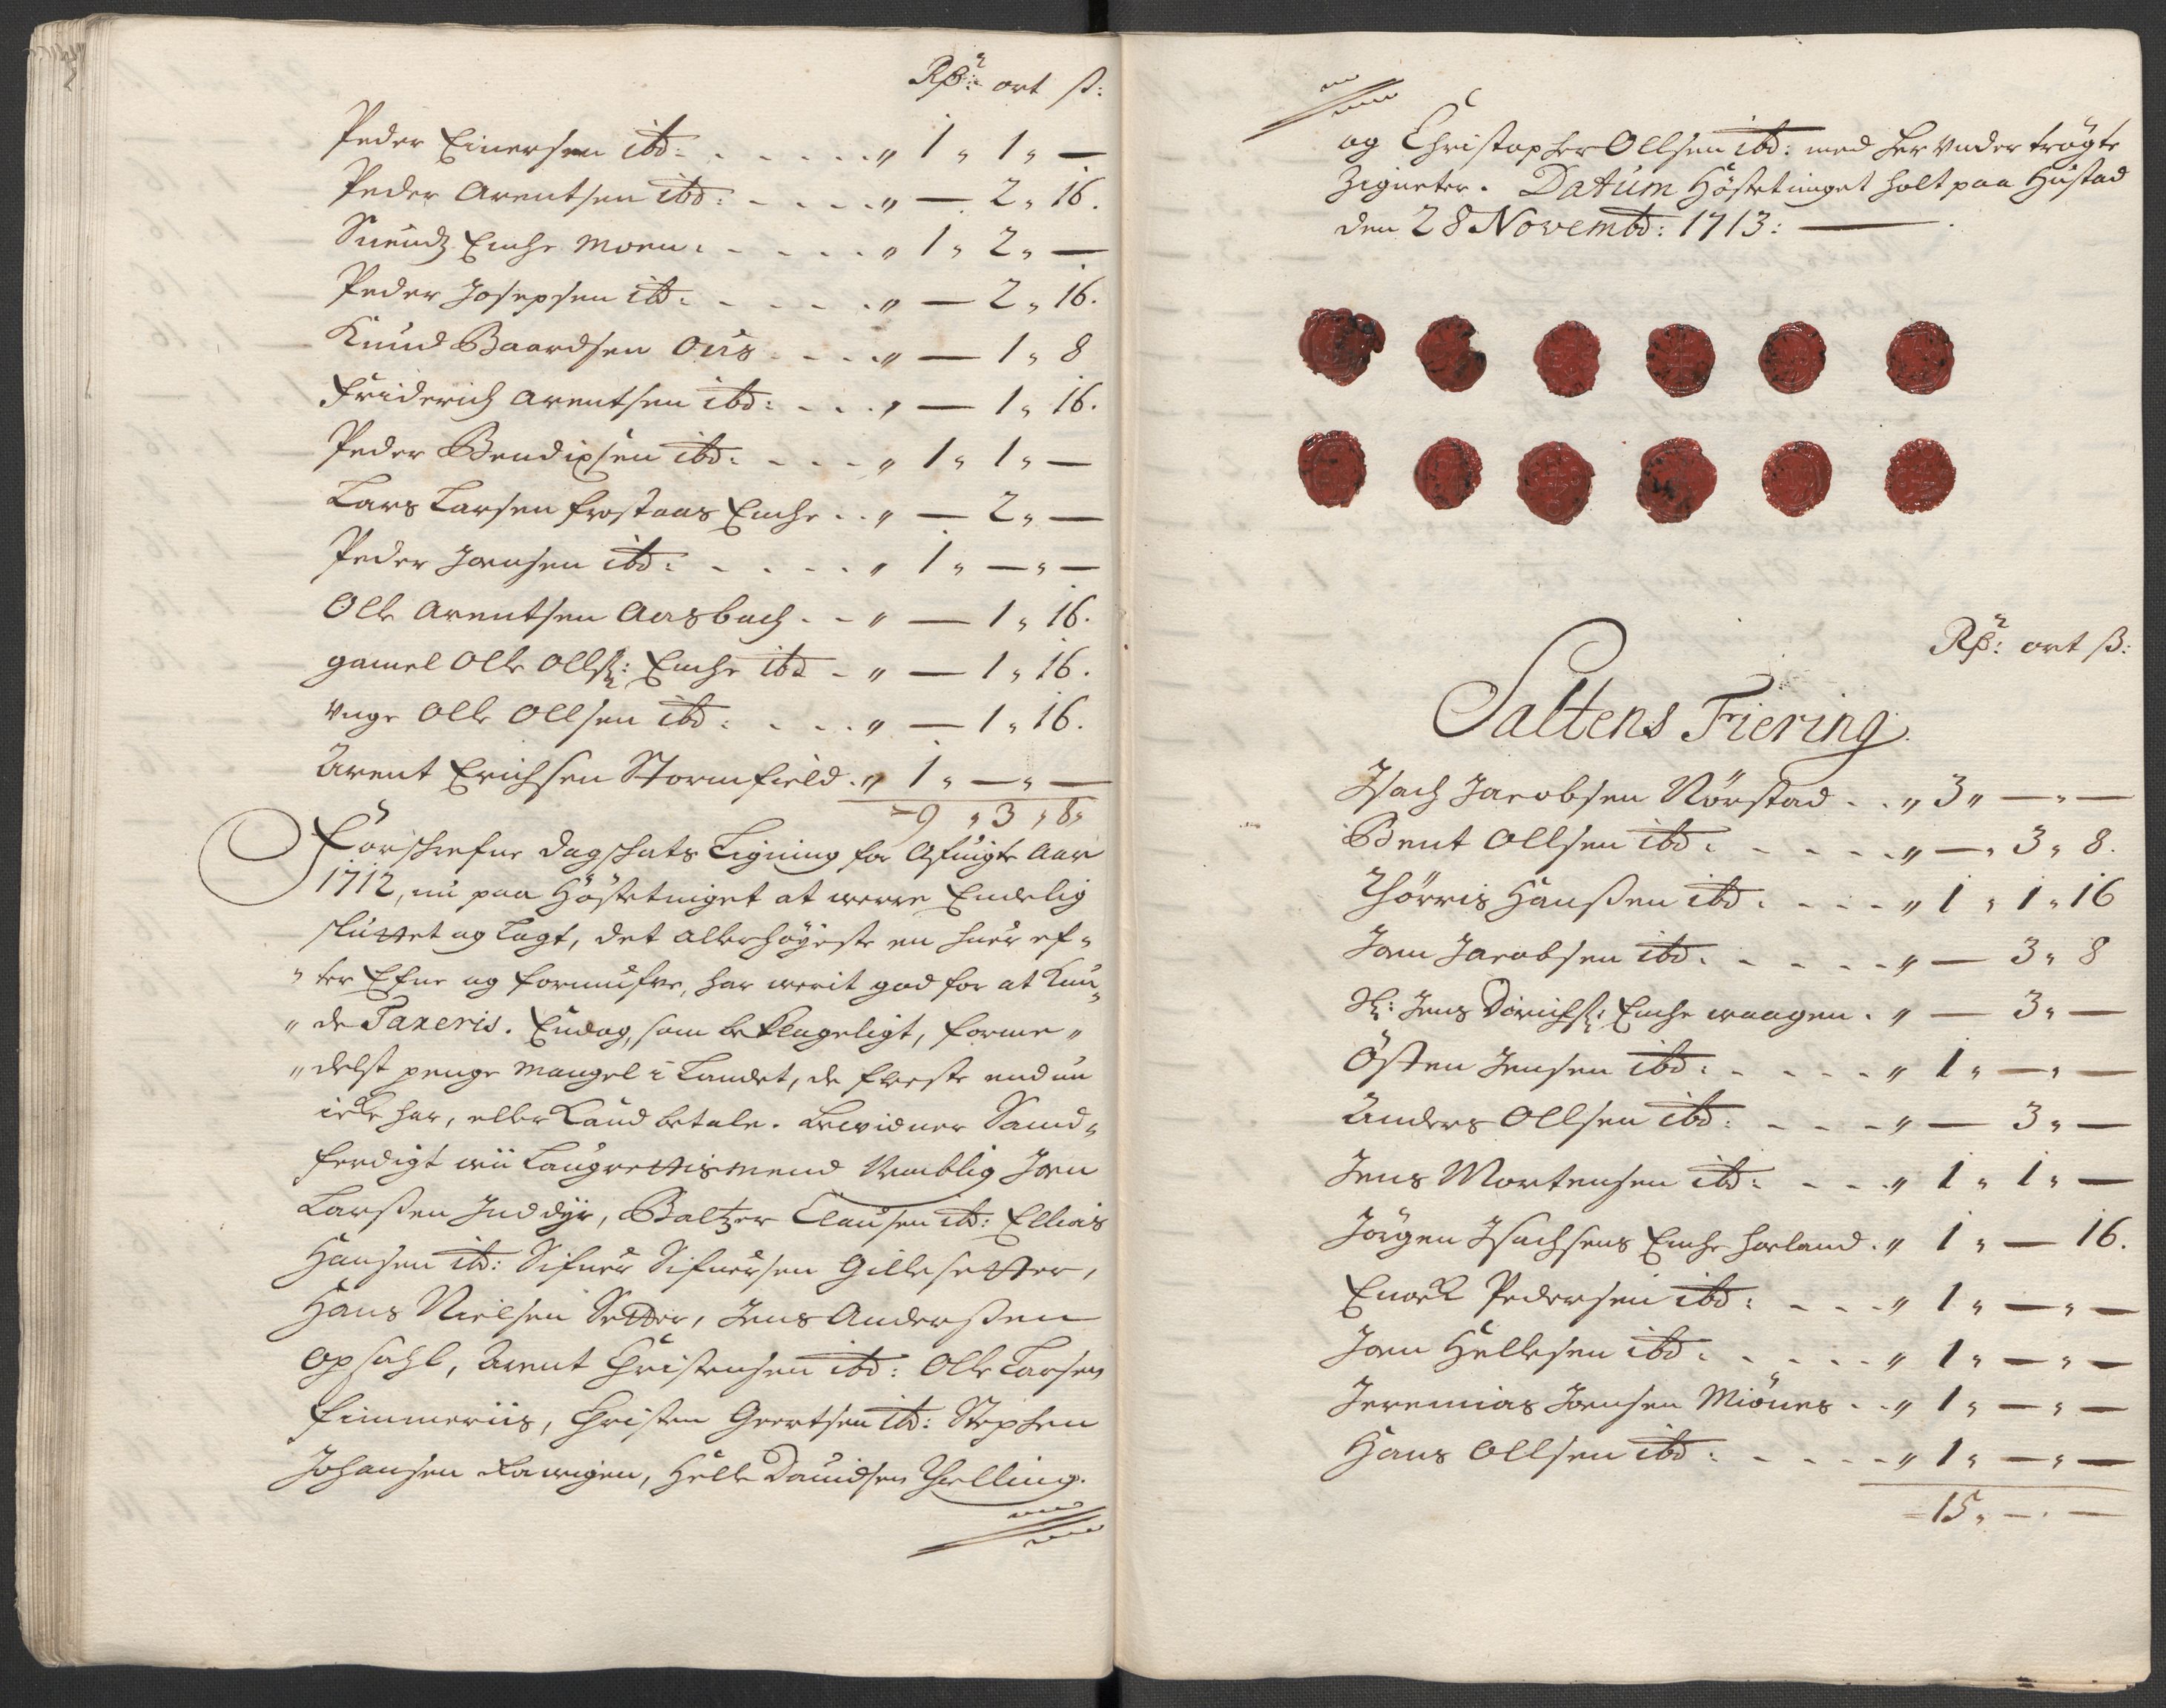 Rdr: ort ß:
Peder Einersen ibd: - - - - - „ 1 „ 1 „ —
Peder Arentsen ibd: - - - - „ — 2 „ 16.
Suends Enche Moen: - - - - „ 1 „ 2 „ —
Peder Josepsen ibd: - - - - „ — 2 „ 16.
Knud Baardsen Ous - - - „ — 1 „ 8
Friderich Arentsen ibd: - - - „ — 1 „ 16.
Peder Bendixsen ibd: - - - „ 1 „ 1 „ —
Lars Larsen Enche - - „ — 2 „ —
Peder Joensen ibd: - - - - „ 1 „ — „ —
Olle Arentsen Aasbach - - „ — 1 „ 16.
gamel Olle Olls: Enche ibd - „ — 1 „ 16.
unge Olle Ollsen ibd: - - - „ — 1 „ 16.
Arent Erichsen Stormfield - „ 1 „ — „ —
= 9 „ 3 „ 8 „
Forschrefne Dagschats Ligning for Afvigte Aar
1712, nu paa Höstetinget at werre Endelig
sluttet og Lagt, det allerhöyeste en huer ef„
„ter Efne og formufve, har werit god for at Kun„
„de Taxeris. Endog, som beklageligt, forme„
„delst penge Mangel i Landet, de fleeste end nu
icke har, eller Kand betale. Bewidner Sand„
ferdigt wii Laugrettismend Nemblig Joen
Larsen Inddyr, Baltzer Clausen ibd: Ellias
Hansen ibd: Sifuer Sifuersen Gillesetter,
Hans Nielsen Setter, Jens Anderssen
Opsahl, Arent Christensen ibd: Olle Larsen
Finmeriis, Christen Geertsen ibd: Stephen
Johansen, Helle Davidsen Thelling.
og Christopher Ollsen ibd: med her under trögte
Zigneter. Datum Höstetinget holt paa Hustad
den 28 Novembr: 1713: —
Rdr: ort ß:
Saltens Fiering
Isach Jacobsen Nörstad - - „ 3 „ — „ —
Bent Ollsen ibd: - - - - - „ — „ 3 „ 8.
Thörris Hanssen ibd: - - - - „ 1 „ 1 „ 16
Joen Jacobsen ibd: - - - - - „ — 3 „ 8
Sl: Jens Dirichs: Enche waagen - „ — 3 „ —
Östen Jensen ibd: - - - - - „ 1 „ — „ —
Anders Ollsen ibd: - - - - „ — 3 „ —
Jens Mortensen ibd: - - - „ 1 „ 1 „ —
Jörgen Isachsens Enche horland - „ 1 „ — 16.
Enock Pedersen ibd: - - - „ 1 „ — „ —
Joen Hellesen ibd: - - - - „ 1 „ — „ —
Jeremias Joensen Miönes - - „ 1 „ — „ —
Hans Ollsen ibd: - - - - - „ 1 „ — „ —
= 15 „ — . —